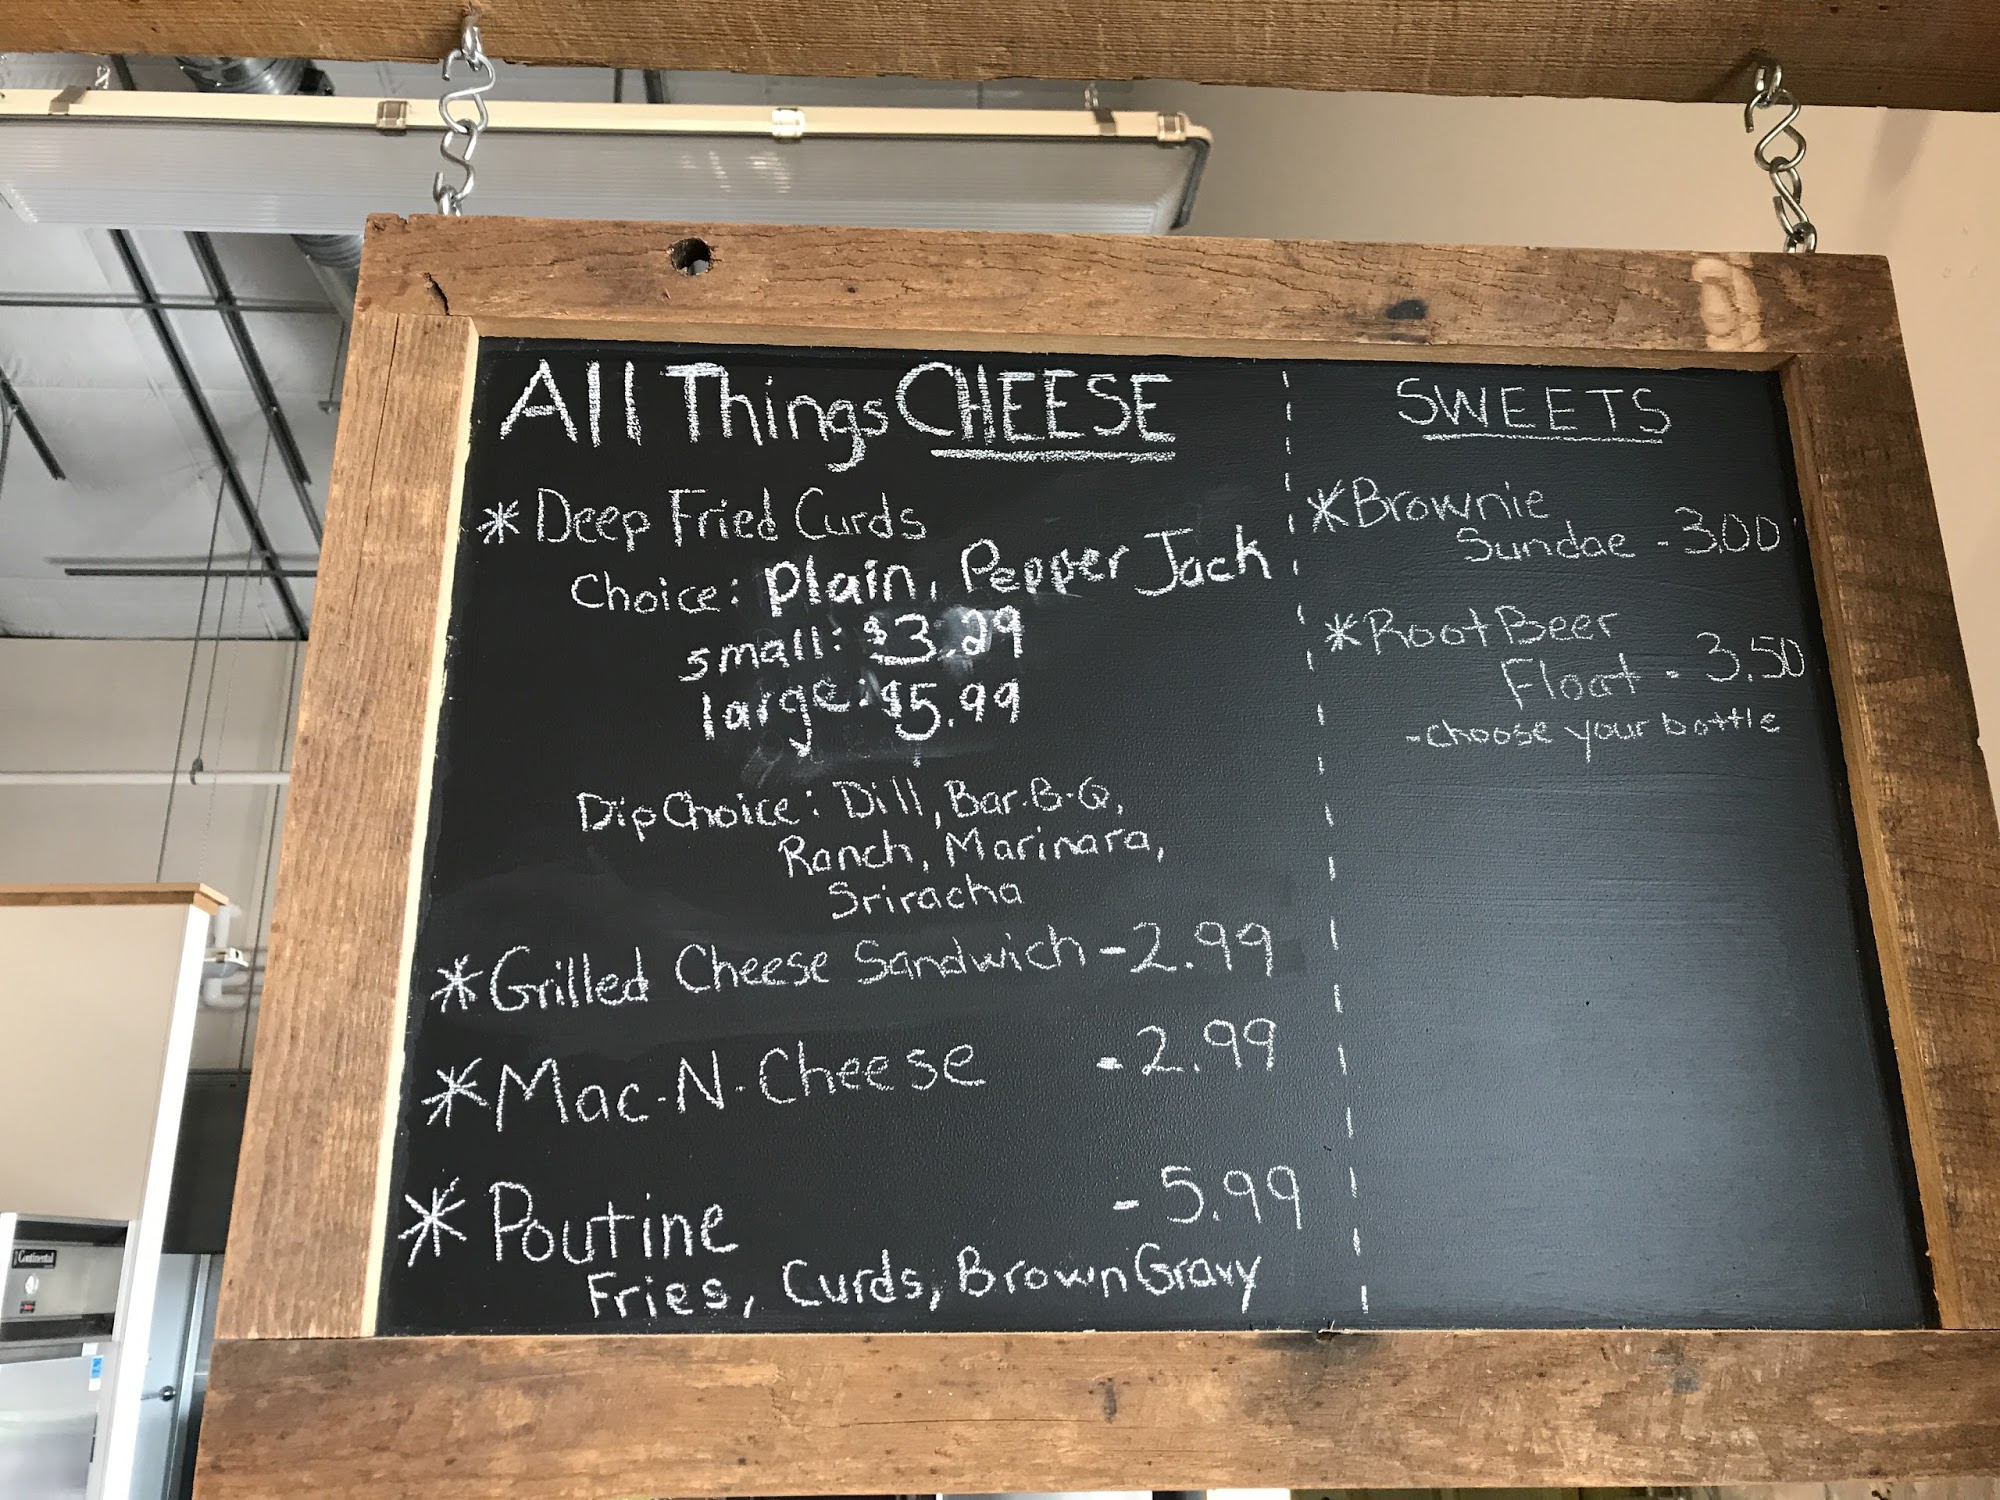 All Things CHEESE
* Deep Fried Curds
Choice: Plain, Pepper Jack
small: $3.29
large: $5.99
Dip Choice: Dill, Bar-B-Q,
Ranch, Marinara,
Sriracha
* Grilled Cheese Sandwich - 2.99
* Mac-N-Cheese - 2.99
* Poutine - 5.99
Fries, Curds, Brown Gravy
SWEETS
* Brownie
Sundae - 3.00
* Root Beer
Float - 3.50
- choose your bottle
Continental